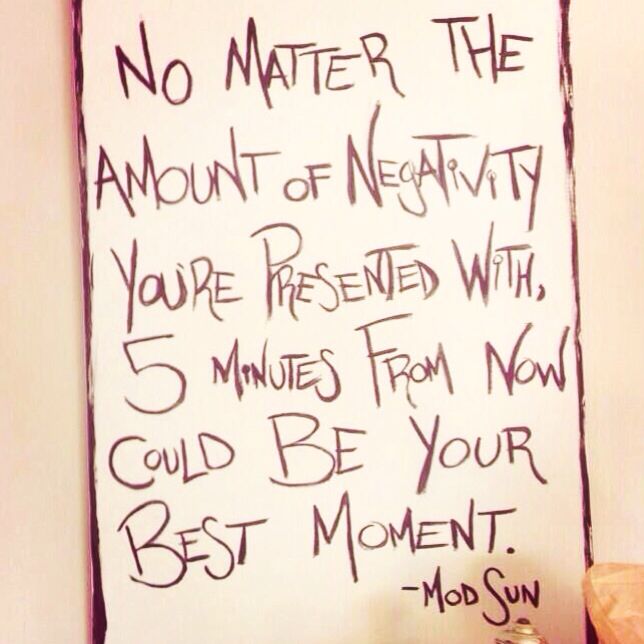 No Matter The
Amount of Negativity
You're Presented With,
5 Minutes From Now
Could Be Your
Best Moment.
-Mod Sun